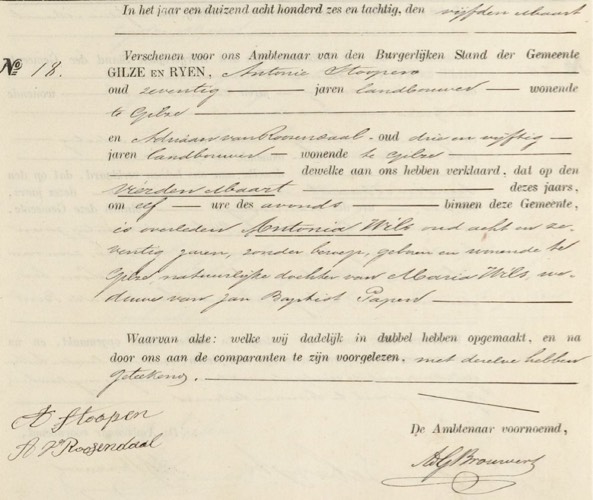 In het jaar een duizend acht honderd zes en tachtig, den vijfden Maart
No 18. Verschenen voor ons Ambtenaar van den Burgerlijken Stand der Gemeente
GILZE EN RYEN, Antonie Stoopen
oud zeventig jaren landbouwer wonende
te Gilze
en Adriaan van Roosendaal oud drie en vijftig
jaren landbouwer wonende te Gilze
dewelke aan ons hebben verklaard, dat op den
vierden Maart dezes jaars,
om elf ure des avonds binnen deze Gemeente,
is overleden Antonia Wils oud acht en ze-
ventig jaren, zonder beroep, geboren en wonende te
Gilze natuurlijke dochter van Maria Wils, we-
duwe van Jan Baptist Papen
Waarvan akte: welke wij dadelijk in dubbel hebben opgemaakt, en na
door ons aan de comparanten te zijn voorgelezen, met dezelve hebben
geteekend.
A Stoopen
A v Roosendaal
De Ambtenaar voornoemd,
Brouwers